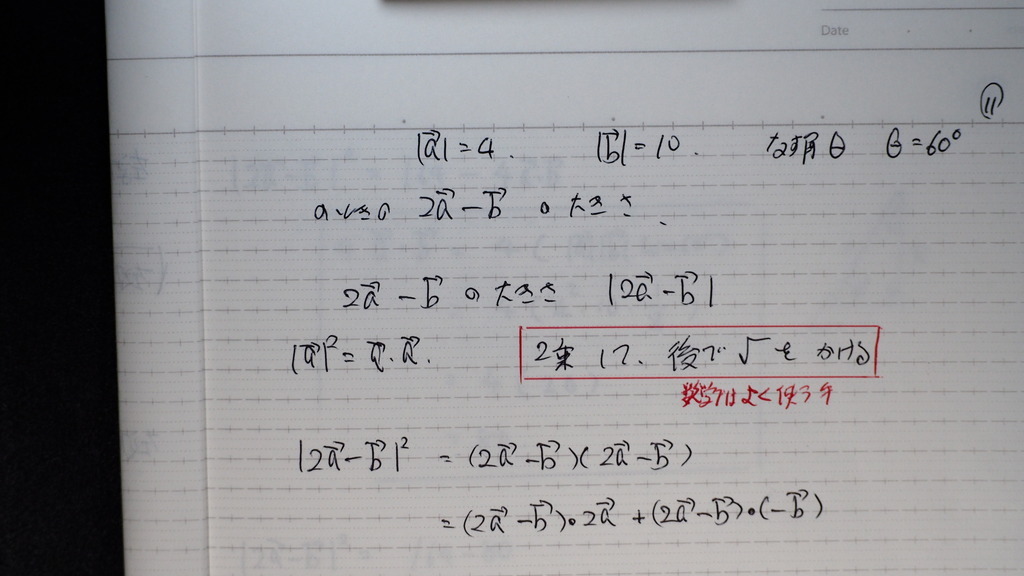 Date
⑪
|a⃗| = 4. |b⃗| = 10. なす角 θ θ = 60°
のときの 2a⃗ - b⃗ の大きさ、
2a⃗ - b⃗ の大きさ |2a⃗ - b⃗|
|a⃗|² = a⃗・a⃗. 2乗して、後で√をかける
数学ではよく使う手
|2a⃗ - b⃗|² = (2a⃗ - b⃗)(2a⃗ - b⃗)
= (2a⃗ - b⃗)・2a⃗ + (2a⃗ - b⃗)・(-b⃗)